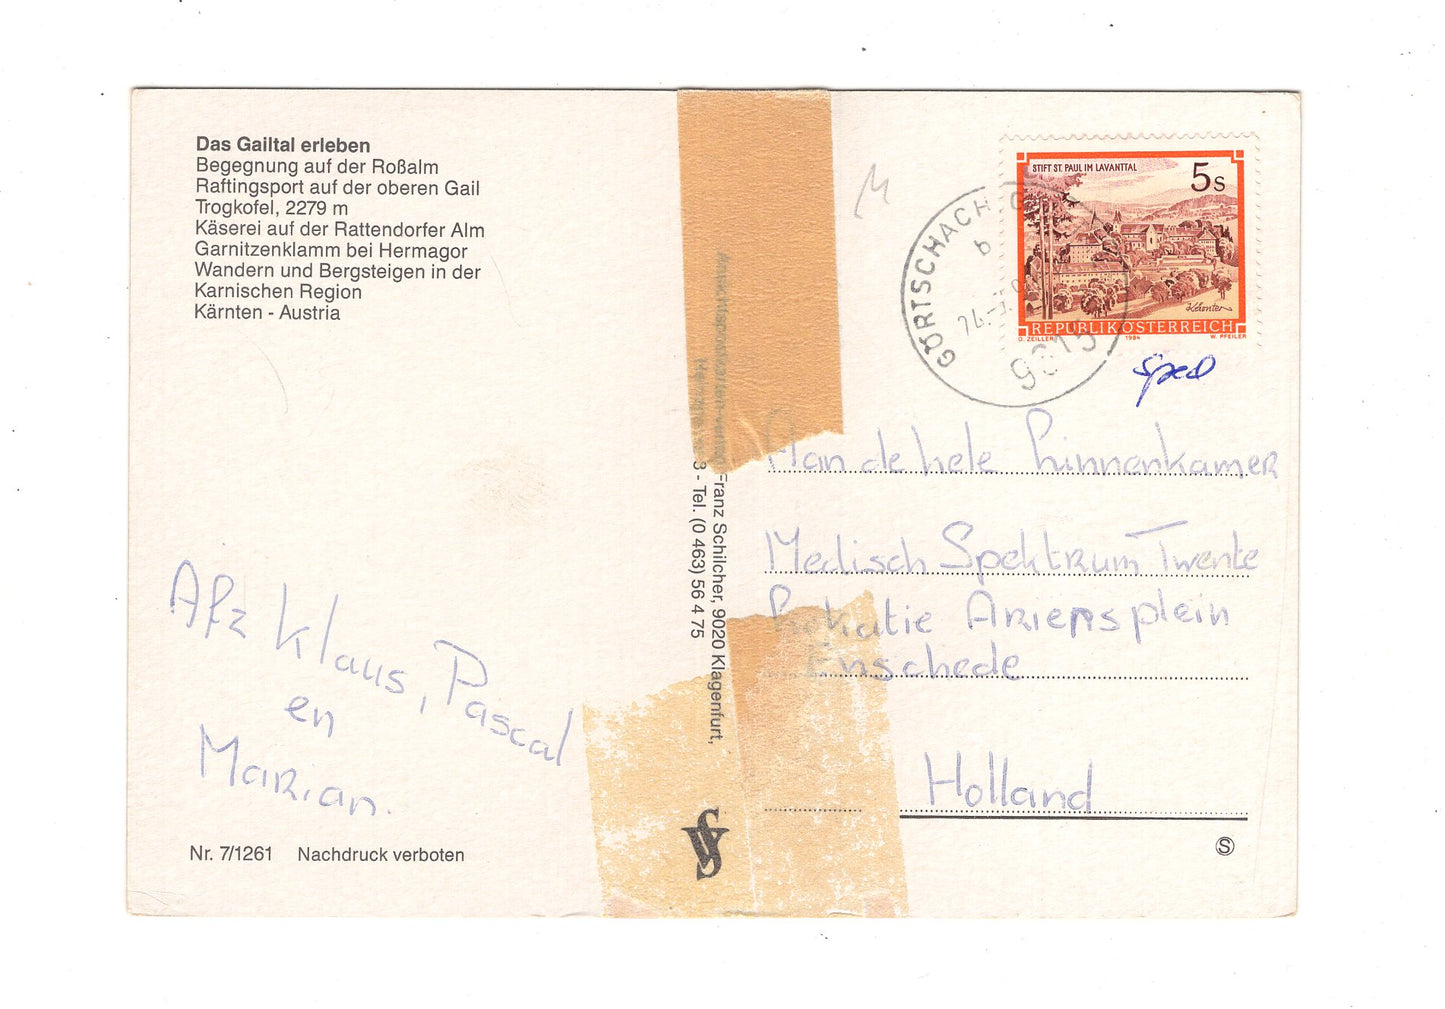 Das Gailtal erleben
Begegnung auf der Roßalm
Raftingsport auf der oberen Gail
Trogkofel, 2279 m
Käserei auf der Rattendorfer Alm
Garnitzenklamm bei Hermagor
Wandern und Bergsteigen in der
Karnischen Region
Kärnten - Austria
Afz Klaus, Pascal
en
Marian.
Nr. 7/1261 Nachdruck verboten
Ansichtspostkarten-verlag Franz Schilcher, 9020 Klagenfurt,
3 - Tel. (0 463) 56 4 75
STIFT ST. PAUL IM LAVANTTAL
5 s
REPUBLIK ÖSTERREICH
O. ZEILLER 1984 W. PFEILER
GÖRTSCHACH
b
Aan de hele Linnenkamer
Medisch Spektrum Twente
Lokatie Ariensplein
Enschede
Holland
S